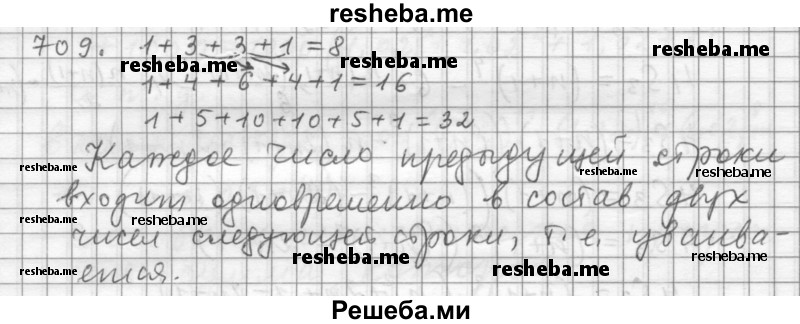 resheba.me
709. 1+3+3+1=8
resheba.me
resheba.me
resheba.me
1+4+6+4+1=16
1+5+10+10+5+1=32
Каждое число предыдущей строки
resheba.me
resheba.me
resheba.me
входит одновременно в состав двух
resheba.me
resheba.me
чисел следующей строки, т.е. удваива-
resheba.me
resheba.me
resheba.me
ется.
Решеба.ми